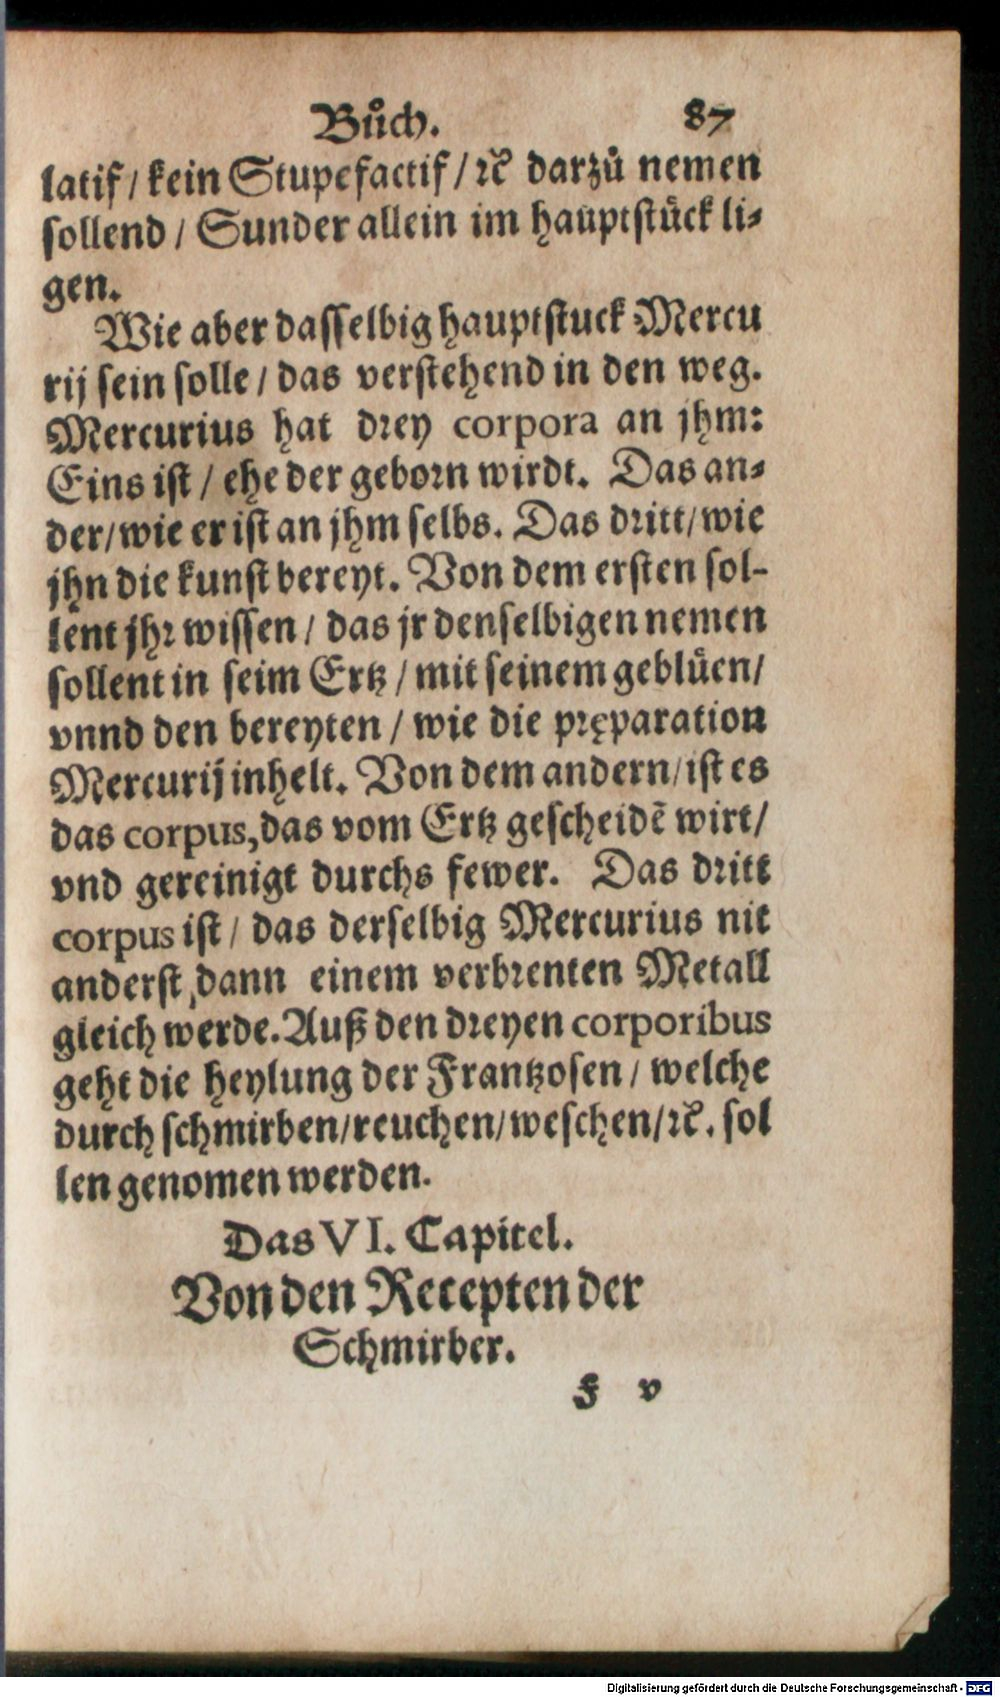 Bůch. 87
latif / kein Stupefactif / ꝛc̃ darzů nemen
sollend / Sunder allein im hauptstück li⸗
gen.
Wie aber dasselbig hauptstuck Mercu
rij sein solle / das verstehend in den weg.
Mercurius hat drey corpora an jhm:
Eins ist / ehe der geborn wirdt. Das an⸗
der / wie er ist an jhm selbs. Das dritt / wie
jhn die kunst bereyt. Von dem ersten sol-
lent jhr wissen / das jr denselbigen nemen
sollent in seim Ertz / mit seinem geblüen /
vnnd den bereyten / wie die pręparation
Mercurij inhelt. Von dem andern / ist es
das corpus, das vom Ertz gescheidẽ wirt /
vnd gereinigt durchs fewer. Das dritt
corpus ist / das derselbig Mercurius nit
anderst, dann einem verbrenten Metall
gleich werde. Auß den dreyen corporibus
geht die heylung der Frantzosen / welche
durch schmirben / reuchen / weschen / ꝛc̃. sol
len genomen werden.
Das VI. Capitel.
Von den Recepten der
Schmirber.
F v
Digitalisierung gefördert durch die Deutsche Forschungsgemeinschaft - DFG